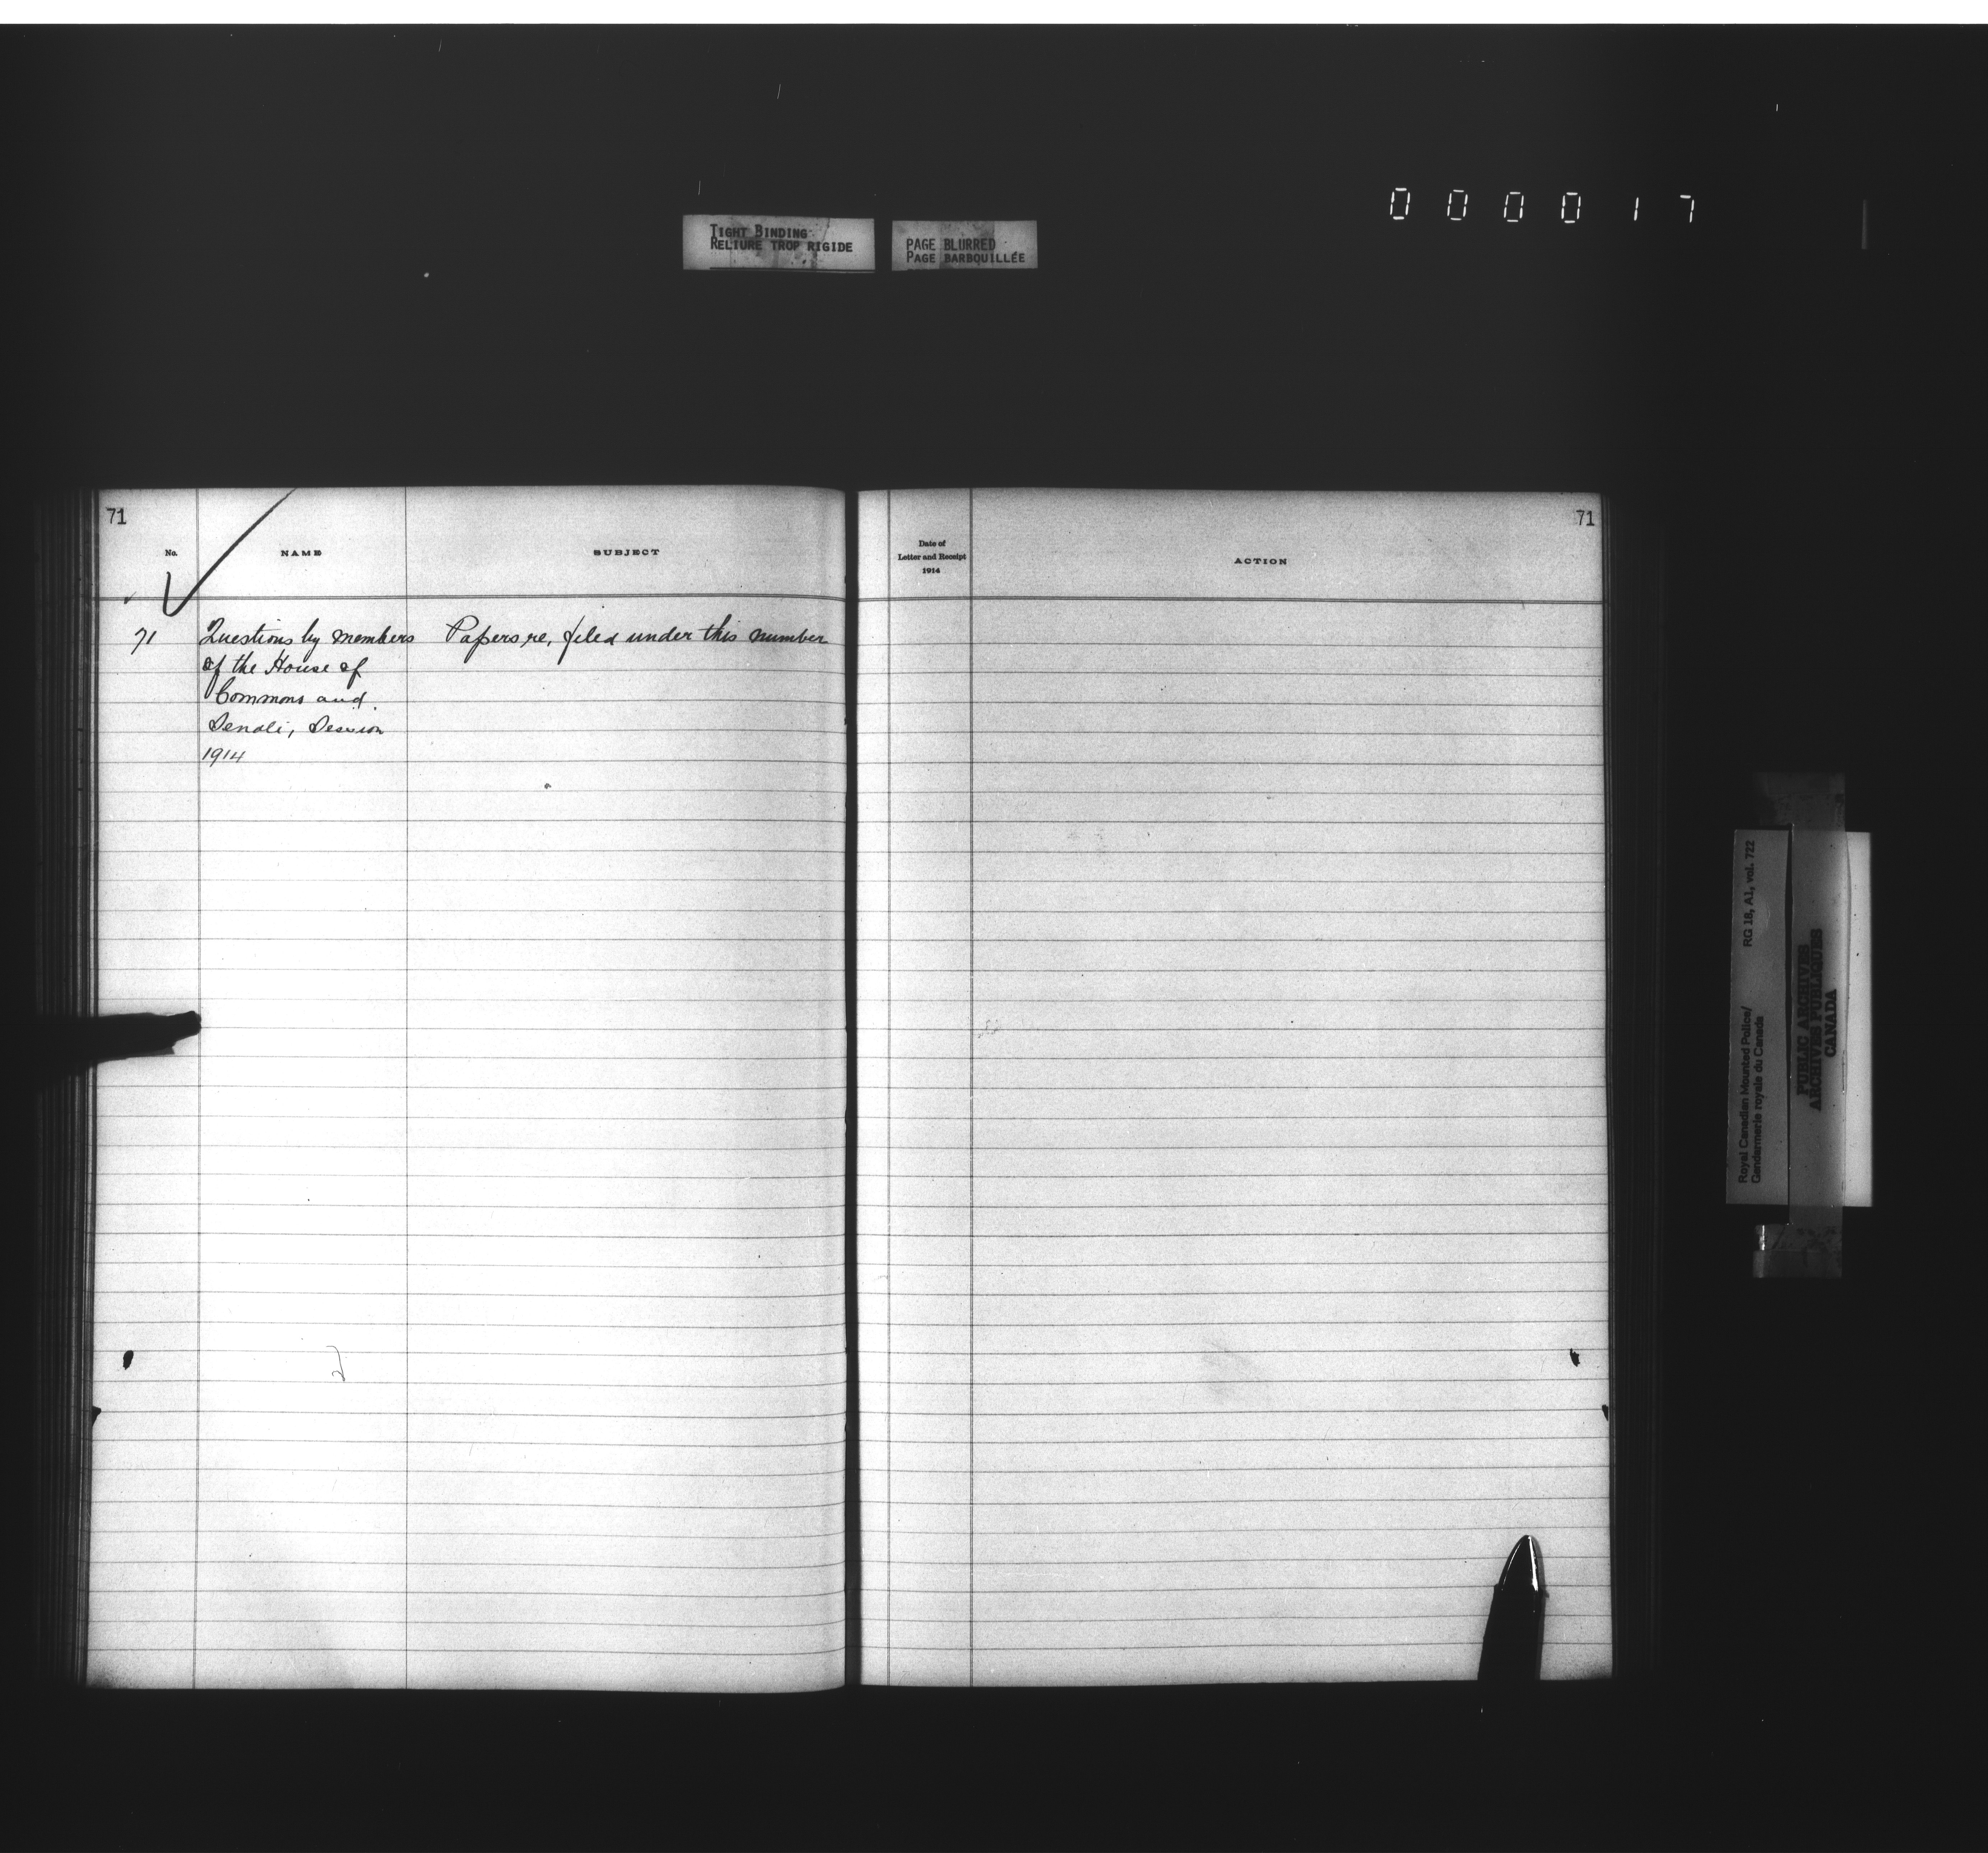 000017
TIGHT BINDING
RELIURE TROP RIGIDE
PAGE BLURRED
PAGE BARBOUILLÉE
71
No.
NAME
SUBJECT
71 Questions by members Papers re, filed under this number
of the House of
Commons and
Senate, Session
1914
71
Date of
Letter and Receipt
1914
ACTION
Royal Canadian Mounted Police/ RG 18, A1, vol. 722
Gendarmerie royale du Canada
PUBLIC ARCHIVES
ARCHIVES PUBLIQUES
CANADA